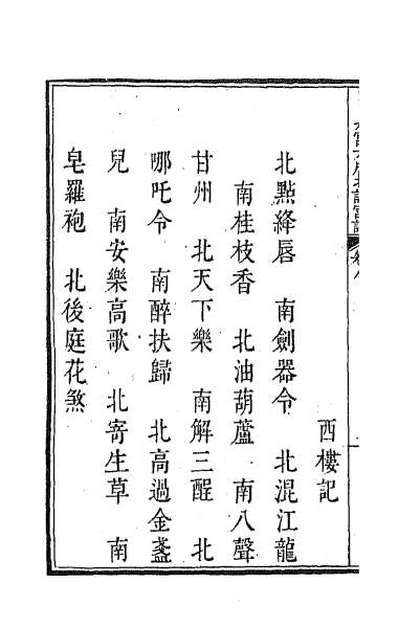 西樓記
北點絳唇　南劍器令　北混江龍
南桂枝香　北油葫蘆　南八聲
甘州　北天下樂　南解三酲　北
哪吒令　南醉扶歸　北高過金盞
兒　南安樂高歌　北寄生草　南
皂羅袍　北後庭花煞